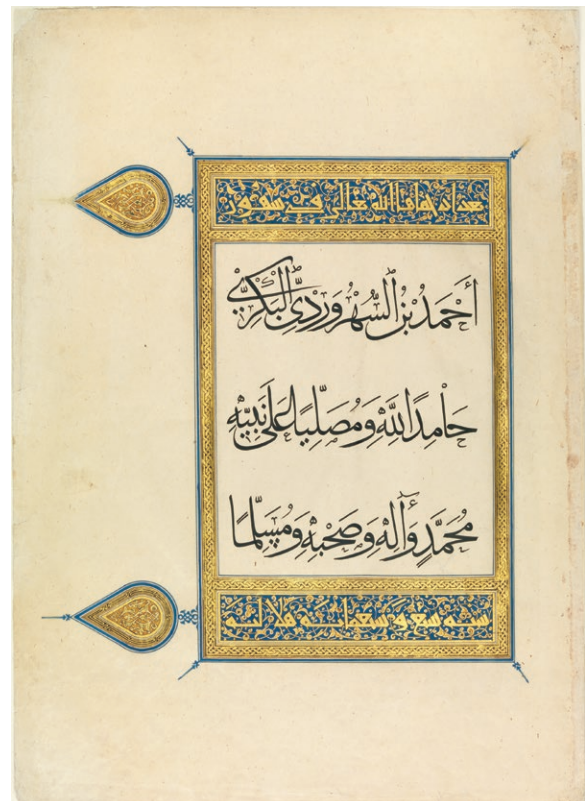 بغداد حماها الله تعالى في شهور
أَحْمَدُ بْنُ السُّهْرَوَرْدِيِّ الْبَكْرِيُّ
حَامِدًا لِلَّهِ وَمُصَلِّيًا عَلَى نَبِيِّهِ
مُحَمَّدٍ وَآلِهِ وَصَحْبِهِ وَمُسَلِّمًا
سنة سبع وسبعمائة